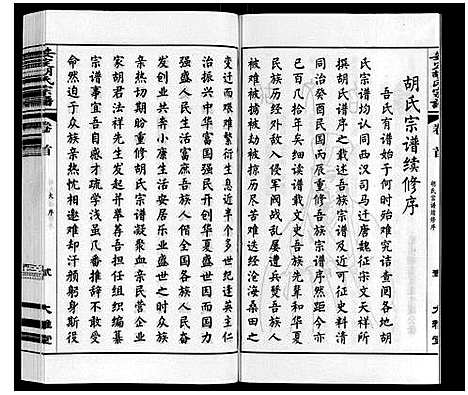 胡氏宗谱续修序
吾氏有谱始于何时殆难究诘查阅各地胡
氏宗谱均认同西汉司马迁唐魏征宋文天祥所
撰胡氏谱序之载述吾族宗谱及近可稽史料清
同治癸酉民国丙辰重修吾族宗谱序然距今亦
已百八十年矣细读吾族谱载文史吾人民和华夏
民族历经外敌入侵军阀战乱屡遭兵燹吾族人
被难被掳被掠历尽苦难迭经沧海桑田之
变迁而艰难繁衍生息半个多世纪逢英主仁
治振兴中华富国强民日创华夏盛世因而国力
强盛人民生活富庶吾族人偕全国各族人民奋
发图强辛勤耕耘安居乐业盛世之时众族
亲热切期盼重修胡氏宗谱凝聚血亲民营企业
家胡君法祥先生发起并举荐吾担任组织编纂
宗谱事宜吾自感才疏学浅虽几番推辞不敢受
命然迫于众族亲热忱相邀难却汗颜躬身斯役
安定胡氏宗谱
卷首
大序
贰
大雅堂
安定胡氏宗谱
卷首
胡氏宗谱续修序
大雅堂